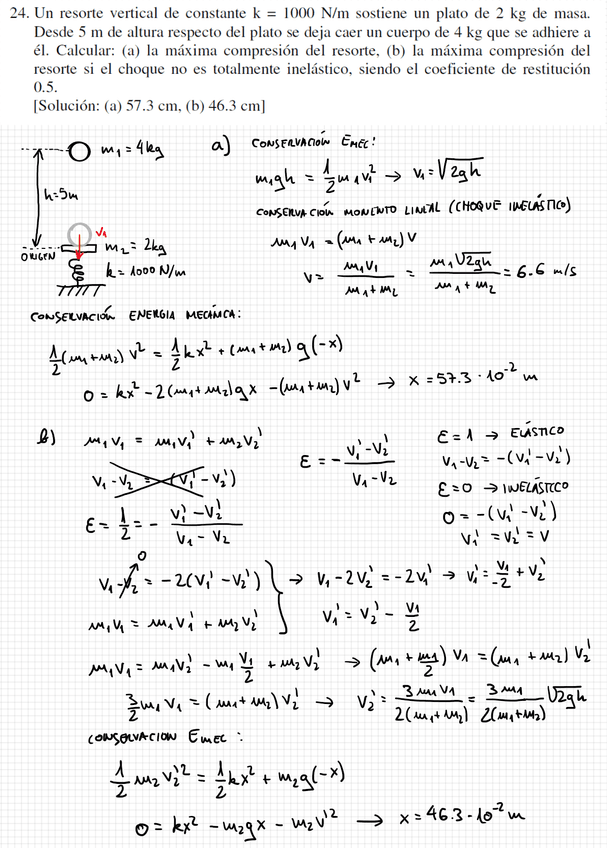 24. Un resorte vertical de constante k = 1000 N/m sostiene un plato de 2 kg de masa.
Desde 5 m de altura respecto del plato se deja caer un cuerpo de 4 kg que se adhiere a
él. Calcular: (a) la máxima compresión del resorte, (b) la máxima compresión del
resorte si el choque no es totalmente inelástico, siendo el coeficiente de restitución
0.5.
[Solución: (a) 57.3 cm, (b) 46.3 cm]
m₁ = 4kg
h=5m
V₁
ORIGEN
m₂ = 2kg
k = 1000 N/m
a) CONSERVACIÓN EMEC:
m₁gh = 1/2 m₁v₁² → v₁ = √2gh
CONSERVACIÓN MOMENTO LINEAL (CHOQUE INELÁSTICO)
m₁ V₁ = (m₁ + m₂) V
V = m₁V₁/(m₁ + m₂) = m₁√2gh/(m₁ + m₂) = 6.6 m/s
CONSERVACIÓN ENERGIA MECÁNICA:
1/2 (m₁+m₂) V² = 1/2 kx² + (m₁+m₂) g (-x)
0 = kx² - 2(m₁+m₂)gx - (m₁+m₂) V² → x = 57.3 · 10⁻² m
b) m₁V₁ = m₁V₁' + m₂V₂'
V₁ - V₂ = -(V₁' - V₂')
ε = 1/2 = - (V₁' - V₂')/(V₁ - V₂)
ε = - (V₁' - V₂')/(V₁ - V₂)
ε = 1 → ELÁSTICO
V₁-V₂ = -(V₁' - V₂')
ε = 0 → INELÁSTICO
0 = -(V₁' - V₂')
V₁' = V₂' = V
0
V₁ - V₂ = -2(V₁' - V₂') → V₁ - 2V₂' = -2V₁' → V₁' = V₁/-2 + V₂'
m₁V₁ = m₁V₁' + m₂V₂' V₁' = V₂' - V₁/2
m₁V₁ = m₁V₂' - m₁ V₁/2 + m₂V₂' → (m₁ + m₁/2) V₁ = (m₁ + m₂) V₂'
3/2 m₁ V₁ = (m₁ + m₂) V₂' → V₂' = 3m₁V₁/2(m₁+m₂) = 3m₁/2(m₁+m₂) √2gh
CONSERVACION EMEC :
1/2 m₂ V₂'² = 1/2 kx² + m₂g(-x)
0 = kx² - m₂gx - m₂V'² → x = 46.3 · 10⁻² m